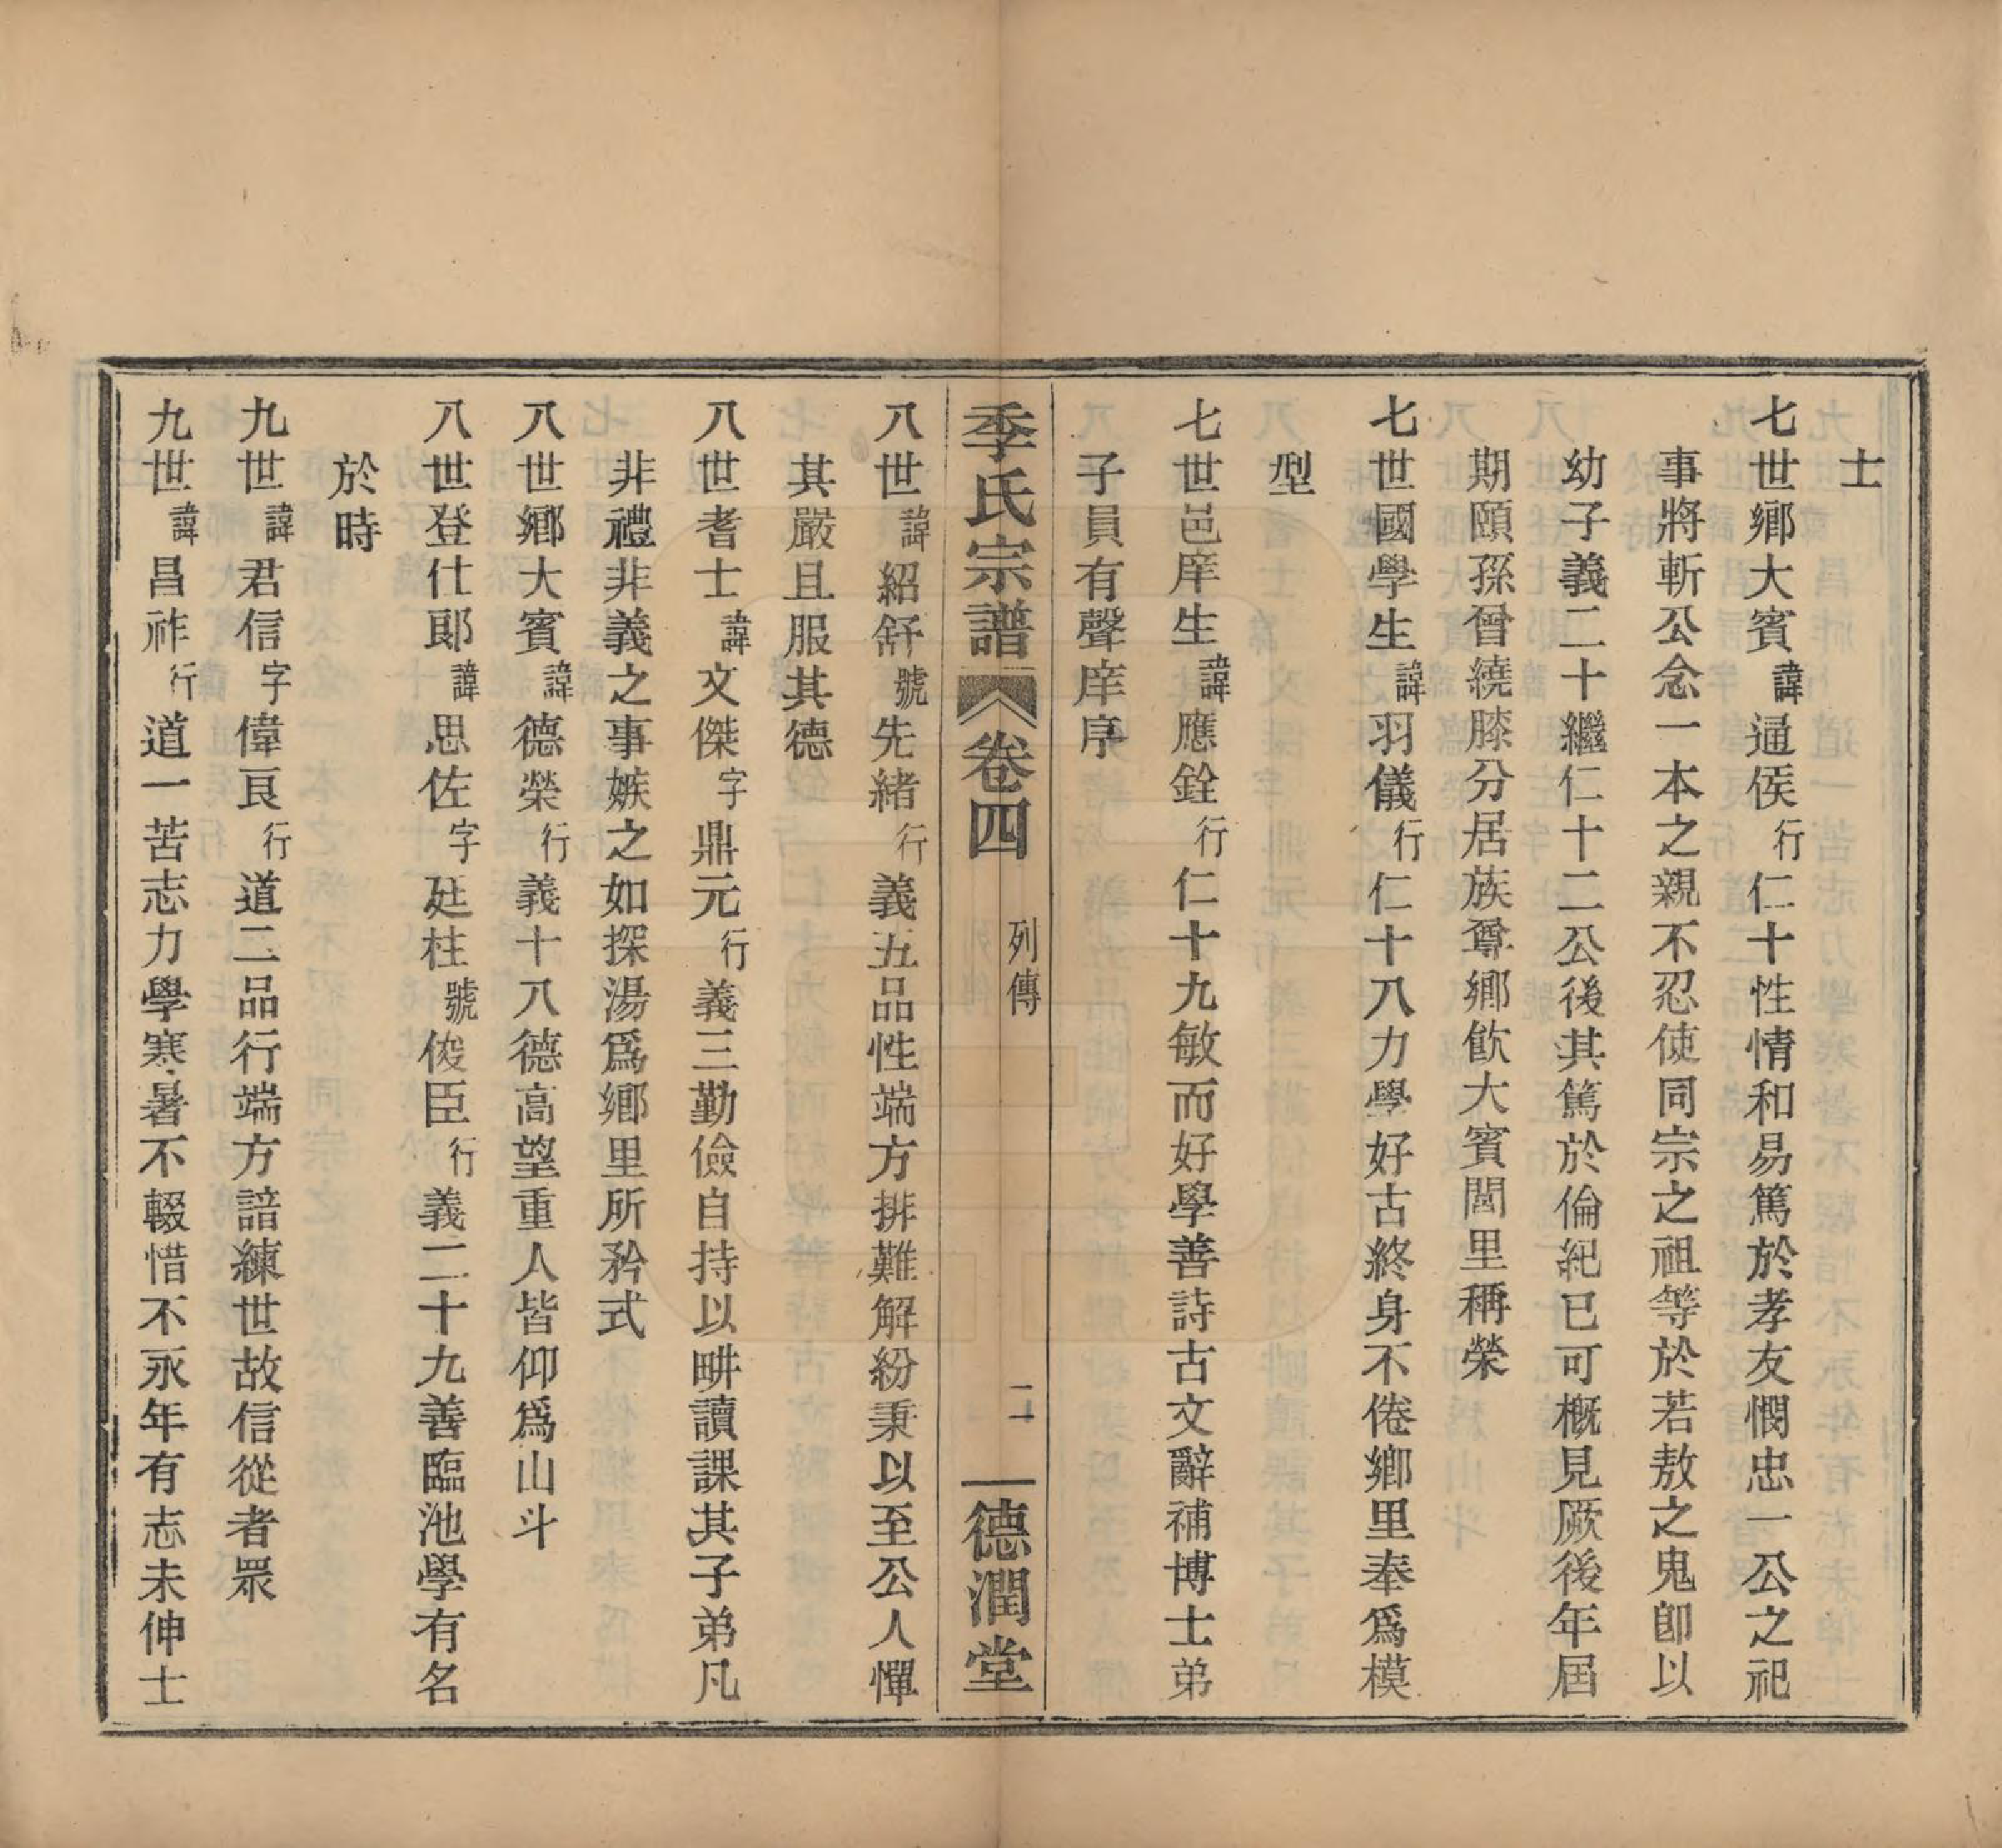 士
七世鄉大賓諱通侯行仁十性情和易篤於孝友憫忠一公之祀
事將斬公念一本之親不忍使同宗之祖等於若敖之鬼卽以
幼子義二十繼仁十二公後其篤於倫紀已可概見厥後年屆
期頤孫曾繞膝分居族尊鄉飲大賓閭里稱榮
七世國學生諱羽儀行仁十八力學好古終身不倦鄉里奉爲模
型
七世邑庠生諱應銓行仁十九敏而好學善詩古文辭補博士弟
子員有聲庠序
季氏宗譜 卷四 列傳 二 德潤堂
八世諱紹舒號先緒行義五品性端方排難解紛秉以至公人憚
其嚴且服其德
八世耆士諱文傑字鼎元行義三勤儉自持以畊讀課其子弟凡
非禮非義之事嫉之如探湯爲鄉里所矜式
八世鄉大賓諱德榮行義十八德高望重人皆仰爲山斗
八世登仕郎諱思佐字廷柱號俊臣行義二十九善臨池學有名
於時
九世諱君信字偉良行道二品行端方諳練世故信從者眾
九世諱昌祚行道一苦志力學寒暑不輟惜不永年有志未伸士